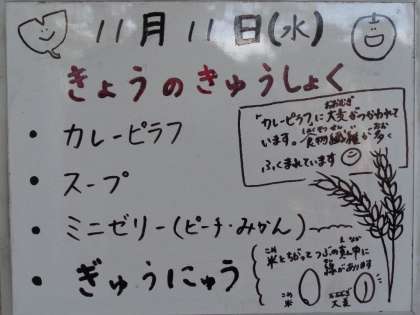 11月11日(水)
きょうのきゅうしょく
・カレーピラフ
・スープ
・ミニゼリー(ピーチ・みかん)
・ぎゅうにゅう
"カレーピラフ"に大麦がつかわれて
おおむぎ
います。食物繊維が多く
しょくもつせんい おお
ふくまれています
米とちがってつぶの真ん中に
こめ ま なか
線があります
米
こめ
大麦
おおむぎ